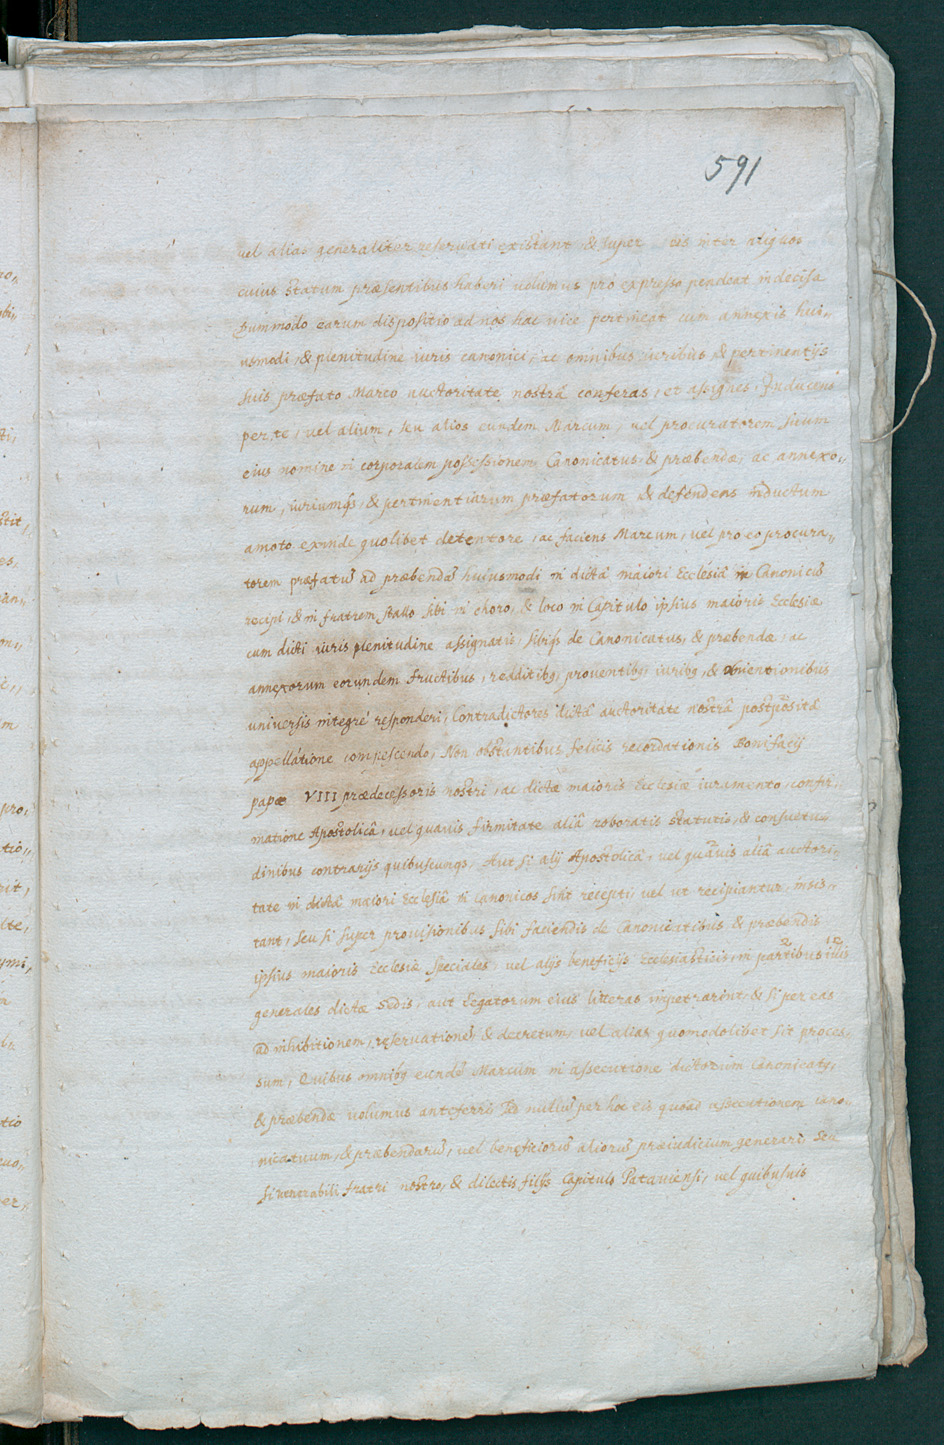 591
vel alias generaliter reservati existant & super eis inter aliquos
cuius statum præsentibus haberi volumus pro expresso pendeat indecisa
Dummodo earum dispositio ad nos hac vice pertineat cum annexis hui„
usmodi, & plenitudine iuris canonici, ac omnibus iuribus & pertinentijs
suis præfato Marco auctoritate nostrâ conferas, et assignes, Inducens
per te, vel alium, seu alios eundem Marcum, vel procuratorem suum
eius nomine in corporalem possessionem Canonicatus & præbendæ, ac annexo„
rum, iuriumq́₃, & pertinentiarum præfatorum & defendens inductum
amoto exinde quolibet detentore, ac faciens Marcum, vel pro eo procura„
torem præfatũ ad præbendã huiusmodi in dictâ maiori Ecclesiâ in Canonicũ
recipi, & in fratrem, stallo sibi in choro, & loco in Capitulo ipsius maioris Ecclesiæ
cum dicti iuris plenitudine assignatis, sibiq́₃ de Canonicatus, & præbendæ, ac
annexorum eorundem fructibus, redditibꝫ, proventibꝫ, iuribꝫ, & obuentionibus
universis integrè responderi, Contradictores dictâ auctoritate nostrâ postpositâ
appellatione compescendo, Non obstantibus felicis recordationis Bonifacij
papæ VIII prædecessoris nostri, ac dictæ maioris Ecclesiæ iuramento, confir„
matione Apostolicâ, vel quavis firmitate aliâ roboratis statutis, & consuetu„
dinibus contrarijs quibuscunq₃, Aut si alij Apostolicâ, vel quavis aliâ auctori„
tate in dictâ maiori Ecclesiâ in canonicos sint recepti, vel ut recipiantur, insis„
tant, seu si super provisionibus sibi faciendis de Canonicatibus & præbendis
ipsius maioris Ecclesiæ speciales, vel alijs beneficijs Ecclesiasticis, in partibus illis
generales dictæ Sedis, aut Legatorum eius litteras impetrarint, & si per eas
ad inhibitionem, reservationẽ & decretum, vel alias quomodolibet sit proces„
sum, Quibus omnibꝫ eundẽ Marcum in assecutione dictorum Canonicatꝰ,
& præbendæ volumus anteferri, sed nullũ per hoc eis quoad assecutionem cano„
nicatuum, & præbendarũ, vel beneficiorũ aliorũ præiudicium generari Seu
si venerabili fratri nostro, & dilectis filijs Capitulo Pataviensi, vel quibusuis